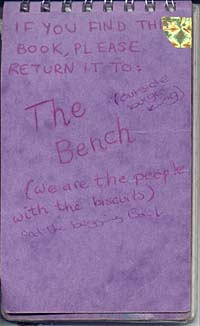 IF YOU FIND TH
BOOK, PLEASE
RETURN IT TO:
The
(outside
Bench
(we are the people
with the biscuits)
and the